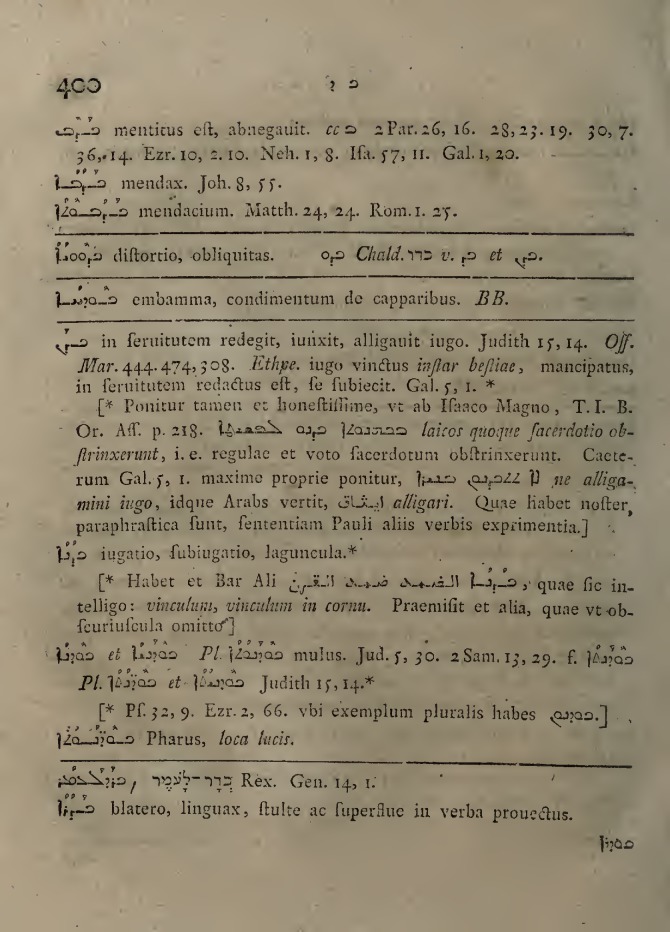 400 ܟ ܕ
ܟܕܒ menticus eſt, abnegauit. cc ܒ 2 Par. 26, 16. 28, 23. 19. 30, 7.
36, 14. Ezr. 10, 2. 10. Neh. 1, 8. Iſa. 57, 11. Gal. 1, 20.
ܟܕܒܐ mendax. Joh. 8, 55.
ܟܕܒܘܬܐ mendacium. Matth. 24, 24. Rom. 1. 25.
diſtortio, obliquitas. Chald. כדר v. et ܟܕܢ.
embamma, condimentum de capparibus. BB.
ܟܕܢ in ſeruitutem redegit, iunxit, alligauit iugo. Judith 15, 14. Off.
Mar. 444. 474, 508. Ethpe. iugo vinctus inſtar beſtiae, mancipatus,
in ſeruitutem redactus eſt, ſe ſubiecit. Gal. 5, 1. *
[* Ponitur tamen et honeſtiſſime, vt ab Iſaaco Magno, T. I. B.
Or. Aſſ. p. 218. ܟܕܢܘ ܐܢܘܢ laicos quoque ſacerdotio ob-
ſtrinxerunt, i. e. regulae et voto ſacerdotum obſtrinxerunt. Caete-
rum Gal. 5, 1. maxime proprie ponitur, ne alliga-
mini iugo, idque Arabs vertit, alligari. Quae habet noſter,
paraphraſtica ſunt, ſententiam Pauli aliis verbis exprimentia.]
ܟܕܢܐ iugatio, ſubiugatio, laguncula.*
[* Habet et Bar Ali ܟܕܢܐ, quae ſic in-
telligo: vinculum, vinculum in cornu. Praemiſit et alia, quae vt ob-
ſcuriuſcula omitto]
ܟܘܕܢܐ et Pl. mulus. Jud. 5, 30. 2 Sam. 13, 29. f. ܟܘܕܢܬܐ
Pl. et Judith 15, 14.*
[* Pſ. 32, 9. Ezr. 2, 66. vbi exemplum pluralis habes .]
Pharus, loca lucis.
ܟܕܪܠܥܡܪ, כְּדָר־לָעֹמֶר Rex. Gen. 14, 1.
blatero, linguax, ſtulte ac ſuperflue in verba prouectus.